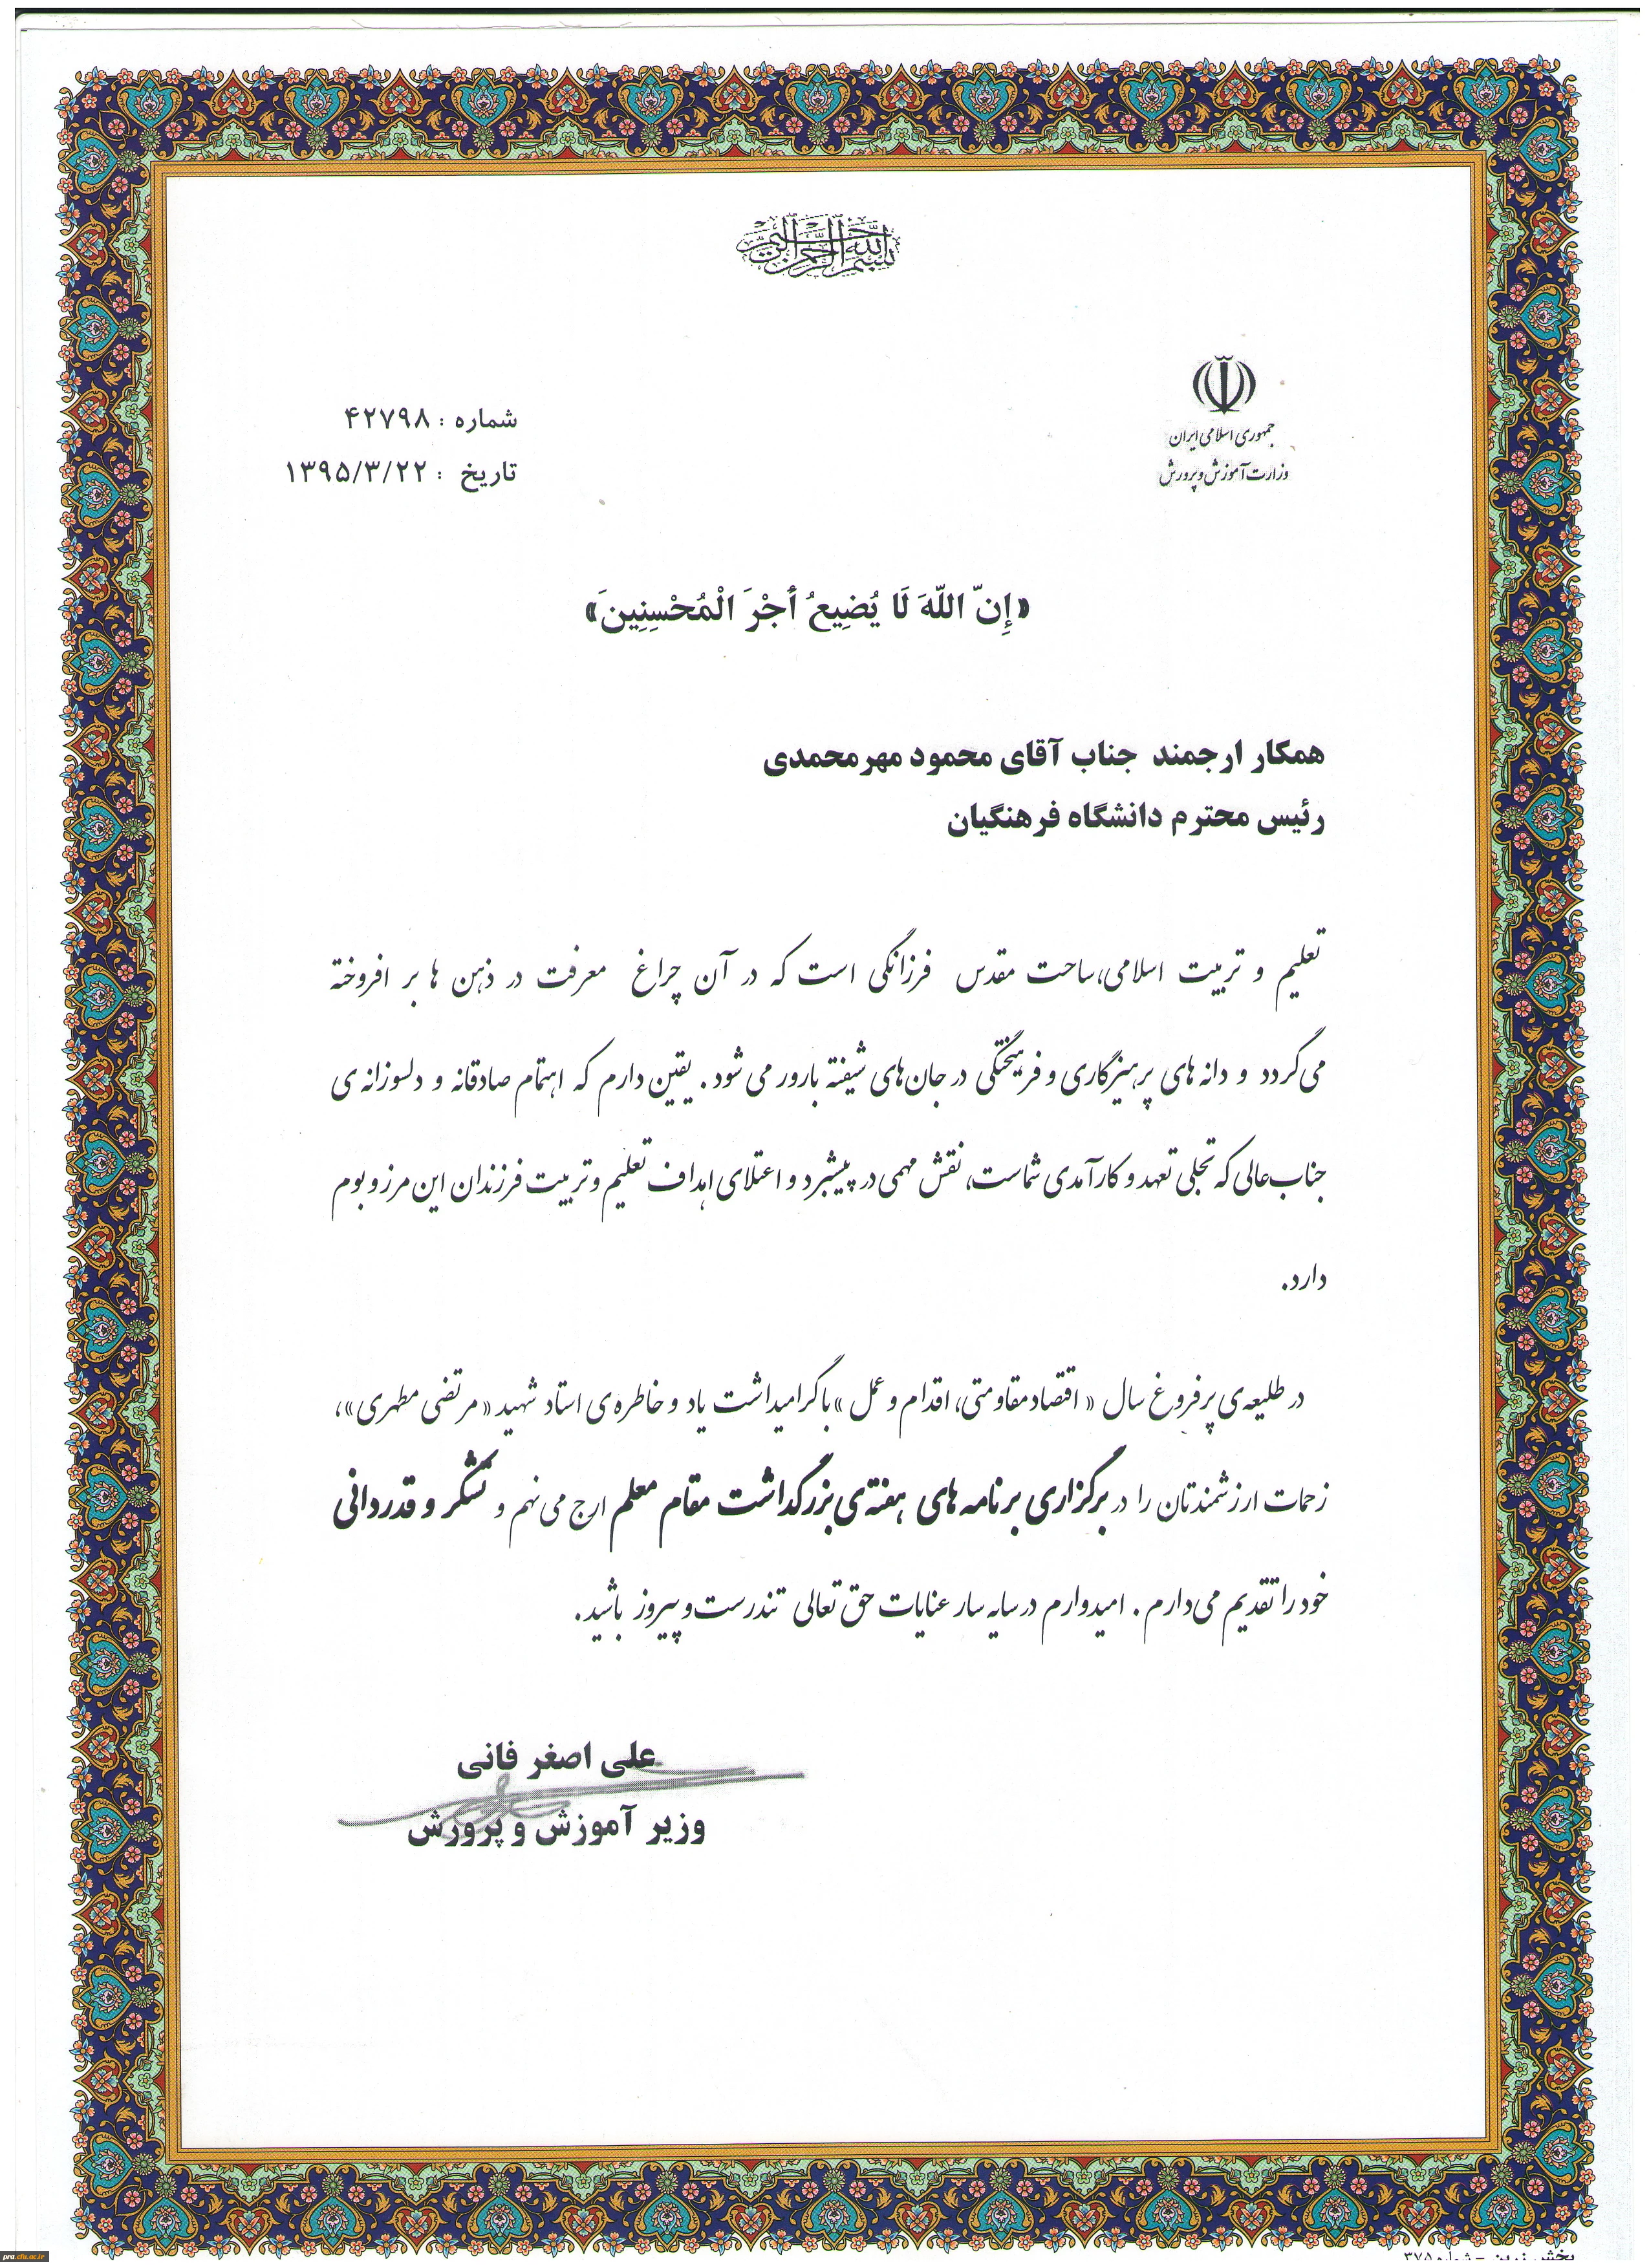 بسم الله الرحمن الرحیم
جمهوری اسلامی ایران
وزارت آموزش و پرورش
شماره : ۴۲۷۹۸
تاریخ : ۱۳۹۵/۳/۲۲
«إِنّ اللّهَ لَا يُضِيعُ أَجْرَ الْمُحْسِنِينَ»
همکار ارجمند جناب آقای محمود مهرمحمدی
رئیس محترم دانشگاه فرهنگیان
تعلیم و تربیت اسلامی، ساحت مقدس فرزانگی است که در آن چراغ معرفت در ذهن ها بر افروخته
می‌گردد و دانه های پرهیزگاری و فریختگی در جان‌های شیفته بارور می شود. یقین دارم که اهتمام صادقانه و دلسوزانه ی
جناب‌عالی که تجلی تعهد و کارآمدی شماست، نقش مهمی در پیشبرد و اعتلای اهداف تعلیم و تربیت فرزندان این مرز و بوم
دارد.
در طلیعه‌ی پرفروغ سال « اقتصاد مقاومتی، اقدام و عمل » با گرامیداشت یاد و خاطره‌ی استاد شهید « مرتضی مطهری »،
زحمات ارزشمندتان را در برگزاری برنامه های هفته‌ی بزرگداشت مقام معلم ارج می نهم و تشکر و قدردانی
خود را تقدیم می‌دارم. امیدوارم در سایه سار عنایات حق تعالی تندرست و پیروز باشید.
علی اصغر فانی
وزیر آموزش و پرورش
pra.cfu.ac.ir